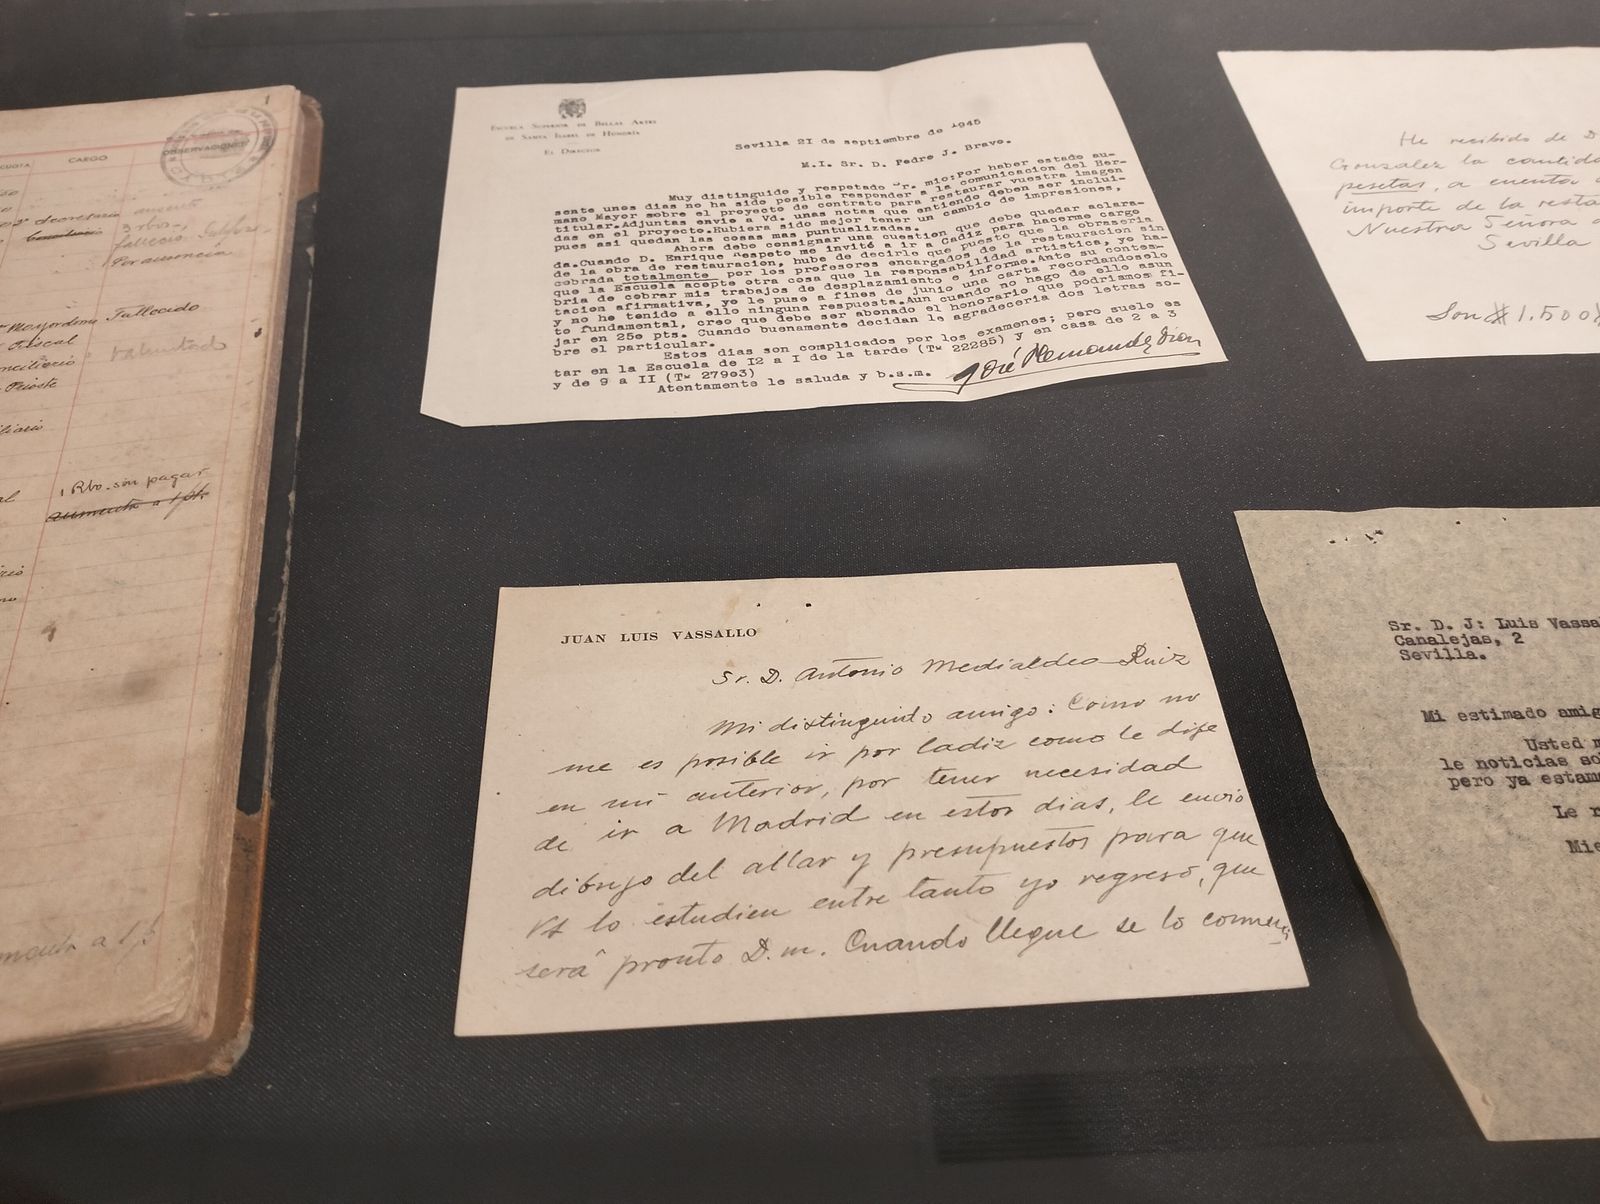 CUOTA CARGO
OBSERVACIONES
1
decretario aumentó
3 rbos,
falleció
Por ausencia
Mayordomo Fallecido
Fiscal
Voluntad
Prioste
1 Rbo. sin pagar
aumenta a 1 pta
aumenta a 1 pt
ESCUELA SUPERIOR DE BELLAS ARTES
DE SANTA ISABEL DE HUNGRIA
EL DIRECTOR
Sevilla 2I de septiembre de 1945
M.I. Sr. D. Pedro J. Bravo.
Muy distinguido y respetado Sr. mio:Por haber estado au-
sente unos dias no ha sido posible responder a la comunicacion del Her-
mano Mayor sobre el proyecto de contrato para restaurar vuestra imagen
titular.Adjuntas envie a Vd. unas notas que entiendo deben ser inclui-
das en el proyecto.Hubiera sido mejor tener un cambio de impresiones,
pues asi quedan las cosas mas puntualizadas.
Ahora debo consignar una cuestion que debe quedar aclara-
da.Cuando D. Enrique Respeto me invitó a ir a Cadiz para hacerme cargo
de la obra de restauracion, hube de decirle que puesto que la obraseria
cobrada totalmente por los profesores encargados de la restauracion sin
que la Escuela acepte otra cosa que la responsabilidad artistica, yo ha-
bria de cobrar mis trabajos de desplazamiento e informe.Ante su contes-
tacion afirmativa, yo le puse a fines de junio una carta recordandoselo
y no he tenido a ello ninguna respuesta.Aun cuando no hago de ello asun
to fundamental, creo que debe ser abonado el honorario que podriamos fi-
jar en 25o pts. Cuando buenamente decidan le agradeceria dos letras so-
bre el particular.
Estos dias son complicados por los examenes; pero suelo es
tar en la Escuela de I2 a I de la tarde (Tº 22285) y en casa de 2 a 3
y de 9 a II (Tº 279o3)
Atentamente le saluda y b.s.m.
José Hernandez Diaz
He recibido de D
Gonzalez la cantida
pesetas, a cuenta
importe de la resta
Nuestra Señora
Sevilla
Son # 1.500
JUAN LUIS VASSALLO
Sr. D. Antonio Medialdea Ruiz
Mi distinguido amigo: Como no
me es posible ir por Cadiz como le dije
en mi anterior, por tener necesidad
de ir a Madrid en estos dias, le envio
dibujo del altar y presupuestos para que
Vs lo estudien entre tanto yo regreso, que
será pronto D.m. Cuando llegue se lo comuni
Sr. D. J: Luis Vassa
Canalejas, 2
Sevilla.
Mi estimado amig
Usted m
le noticias so
pero ya estam
Le r
Mie